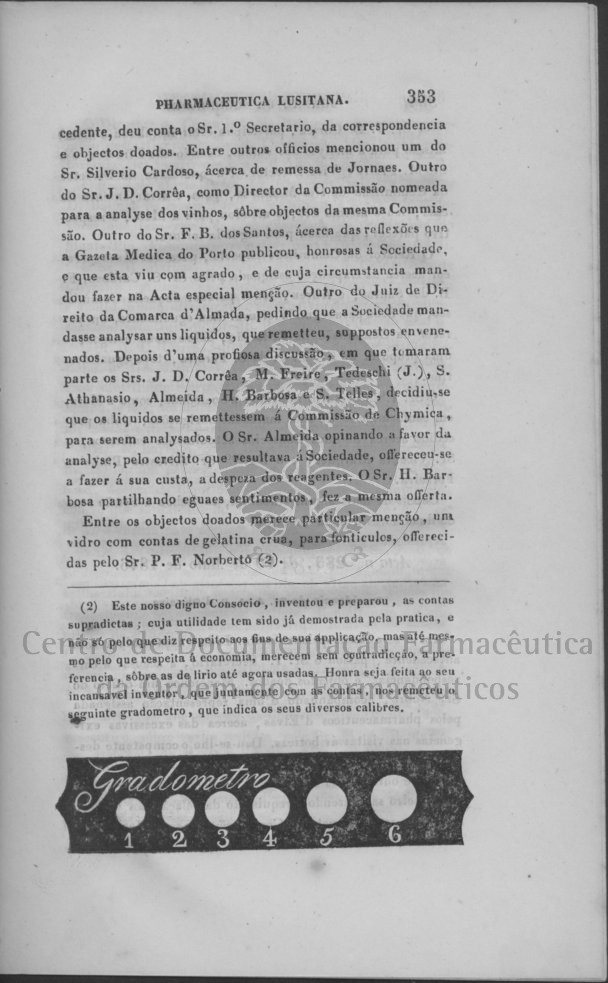 PHARMACEUTICA LUSITANA. 353
cedente, deu conta o Sr. 1.º Secretario, da correspondencia
e objectos doados. Entre outros officios mencionou um do
Sr. Silverio Cardoso, ácerca de remessa de Jornaes. Outro
do Sr. J. D. Corrêa, como Director da Commissão nomeada
para a analyse dos vinhos, sôbre objectos da mesma Commis-
são. Outro do Sr. F. B. dos Santos, ácerca das reflexões que
a Gazeta Medica do Porto publicou, honrosas á Sociedade,
e que esta viu com agrado, e de cuja circumstancia man-
dou fazer na Acta especial menção. Outro do Juiz de Di-
reito da Comarca d'Almada, pedindo que a Sociedade man-
dasse analysar uns liquidos, que remetteu, suppostos envene-
nados. Depois d'uma profiosa discussão, em que tomaram
parte os Srs. J. D. Corrêa, M. Freire, Tedeschi (J.), S.
Athanasio, Almeida, H. Barbosa e S. Telles, decidiu-se
que os liquidos se remettessem á Commissão de Chymica,
para serem analysados. O Sr. Almeida opinando a favor da
analyse, pelo credito que resultava á Sociedade, offereceu-se
a fazer á sua custa, a despeza dos reagentes. O Sr. H. Bar-
bosa partilhando eguaes sentimentos, fez a mesma offerta.
Entre os objectos doados merece particular menção, um
vidro com contas de gelatina crua, para fonticulos, offereci-
das pelo Sr. P. F. Norberto (2).
(2) Este nosso digno Consocio, inventou e preparou, as contas
supradictas; cuja utilidade tem sido já demostrada pela pratica, e
não só pelo que diz respeito aos fins de sua applicação, mas até mes-
mo pelo que respeita á economia, merecem sem contradicção, a pre-
ferencia, sôbre as de lirio até agora usadas. Honra seja feita ao seu
incansavel inventor, que juntamente com as contas, nos remeteu o
seguinte gradometro, que indica os seus diversos calibres.
Centro de Documentação Farmacêutica
da Ordem dos Farmacêuticos
Gradometro
1 2 3 4 5 6